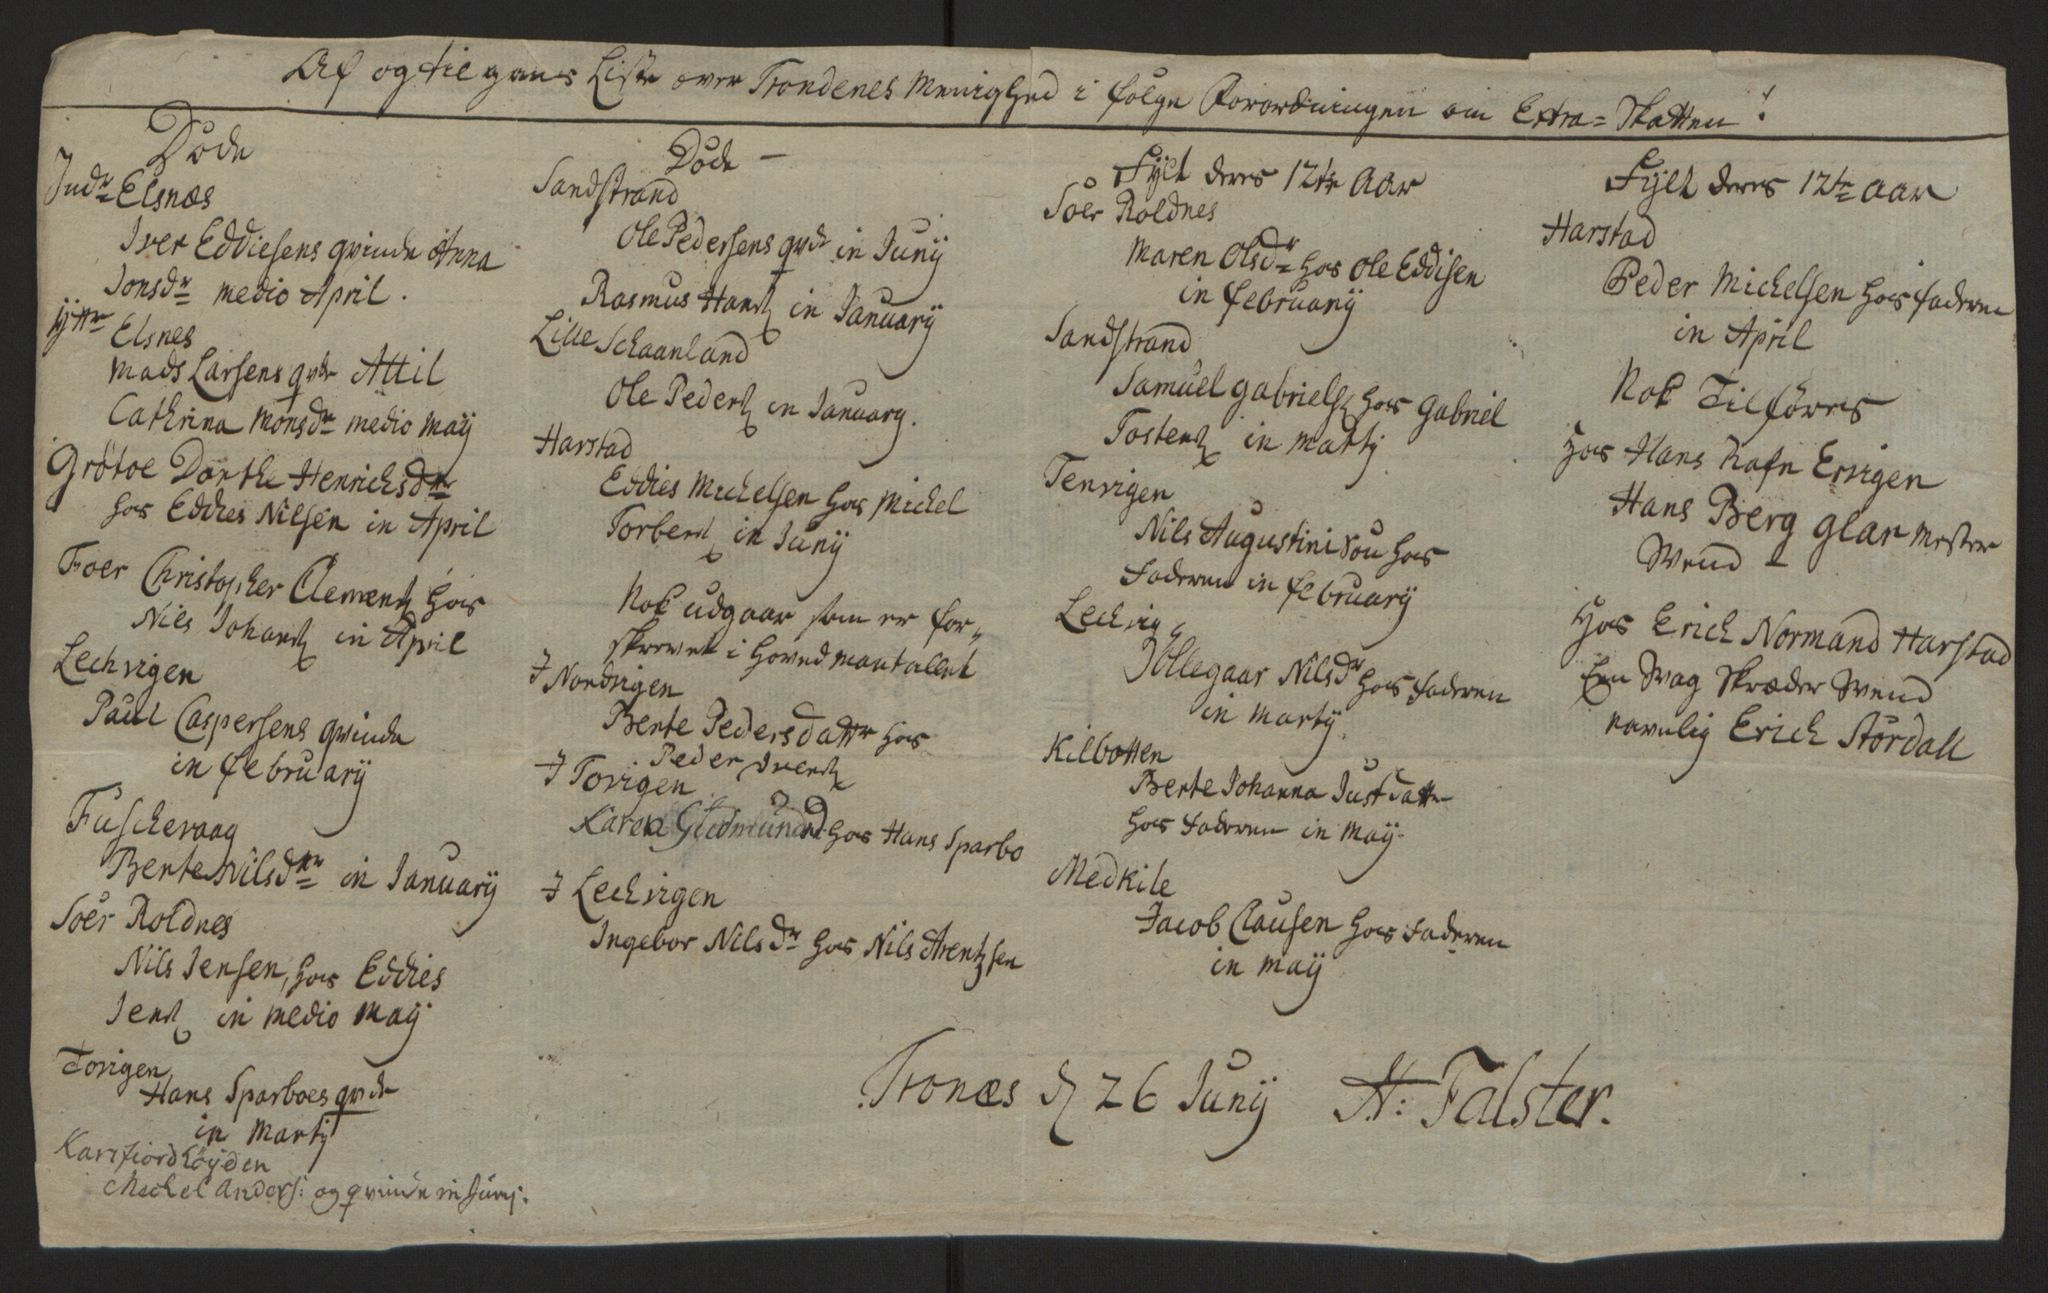 Af og til gans Liste over Trondenes Menighed i følge Forordningen om Extra-Skatten!
Døde
Indr Elsnæs
Iver Eddiesens qvinde Anna
Jonsdr medio April.
Ytter
Elsnes
Mads Larsens qvde Attil
Cathrina Monsdr medio Maij
Grøtøe Dorthe Henrichsdtr
hos Eddies Nilsen in April
Christopher Clements hos
Nils Johans in April
Lechvigen
Paul Caspersens qvinde
in February
Fuschevaag
Berte Nilsdtr in January
Søer Roldnes
Nils Jensen, hos Eddies
Jens in medio Maij
Tovigen
Hans Sparboes qvde
in Martij
Michel Anders: og qvinde in Junij.
Døde -
Sandstrand
Ole Pedersens qvde in Junij
Rasmus Hans in January
Lille Schaanland
Ole Peders in January.
Harstad
Eddies Michelsen hos Michel
Torbers in Junij
Nok udgaar som er for-
skrevet i Hovedmantallet
I Nordvigen
Berte Pedersdatter hos
Peder Ivers
I Tovigen
Karen Gudmunds hos Hans Sparbo
I Lechvigen
Ingebor Nilsdr hos Nils Arentzsen
Fylt deres 12te Aar
Søer Roldnes
Maren Olsdr hos Ole Eddisen
in February
Sandstrand
Samuel Gabriels hos Gabriel
Tostens in Martij
Tenvigen
Nils Augustinison hos
Faderen in February
Lechvig
Jøllegaar Nilsdr hos Faderen
in Martij
Kilbotten
Berte Johanna Justdatter
hos Faderen in Maij.
Medkile
Jacob Clausen hos Faderen
in Maij
Fylt deres 12te Aar
Harstad
Peder Michelsen hos Faderen
in April
Nok Tilføres
hos Hans Rafn Ervigen
Hans Berg Glar Mester
Svend
Hos Erich Normand Harstad
Een Svag Skræder Svend
navnlig Erich Størdall
Tronæs d 26 Junij A: Falster.